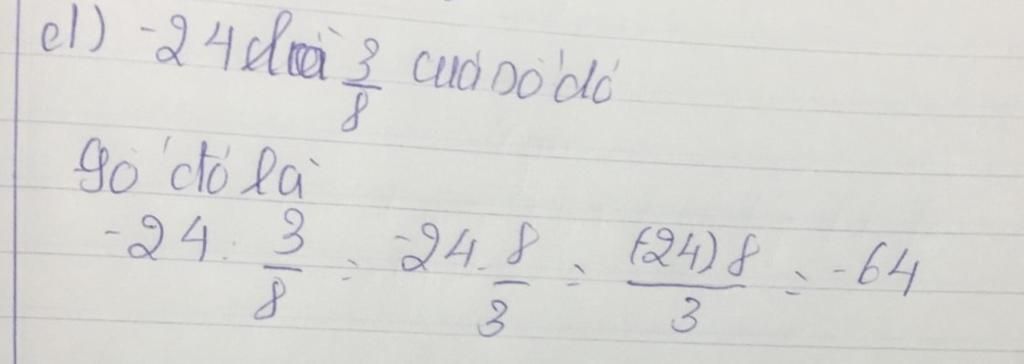 d) -24 là 3/8 của số đó
Số đó là
-24 : 3/8 = -24 . 8/3 = (-24) 8/3 = -64